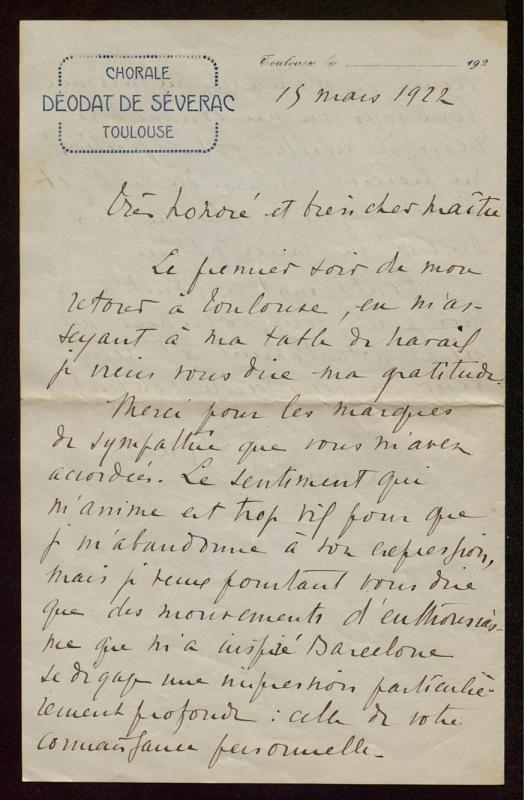 CHORALE
DÉODAT DE SÉVERAC
TOULOUSE
Toulouse le 192
15 mars 1922
Très honoré et bien cher maître
Le premier soir de mon
retour à Toulouse, en m'as-
seyant à ma table de travail
je viens vous dire ma gratitude.
Merci pour les marques
de sympathie que vous m'avez
accordées. Le sentiment qui
m'anime est trop vif pour que
je m'abandonne à son expression,
mais je veux pourtant vous dire
que des mouvements d'enthousias-
me que m'a inspiré Barcelone
se dégage une impression particuliè-
rement profonde : celle de votre
connaissance personnelle.